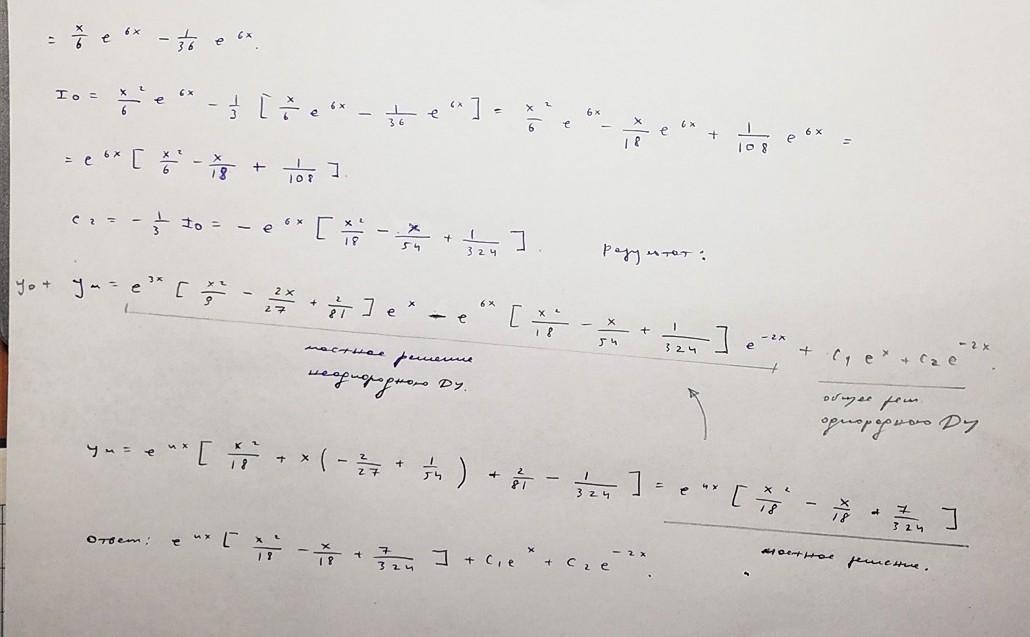 = x/6 e^6x - 1/36 e^6x.
I₀ = x²/6 e^6x - 1/3 [ x/6 e^6x - 1/36 e^6x ] = x²/6 e^6x - x/18 e^6x + 1/108 e^6x =
= e^6x [ x²/6 - x/18 + 1/108 ].
C₂ = - 1/3 I₀ = - e^6x [ x²/18 - x/54 + 1/324 ]. Результат:
y₀ + yч = e^3x [ x²/9 - 2x/27 + 2/81 ] e^x - e^6x [ x²/18 - x/54 + 1/324 ] e^-2x + C₁ e^x + C₂ e^-2x.
частное решение
неоднородного ДУ.
общее реш.
однородного ДУ
yч = e^4x [ x²/18 + x ( - 2/27 + 1/54 ) + 2/81 - 1/324 ] = e^4x [ x²/18 - x/18 + 7/324 ]
частное решение.
Ответ: e^4x [ x²/18 - x/18 + 7/324 ] + C₁e^x + C₂e^-2x.